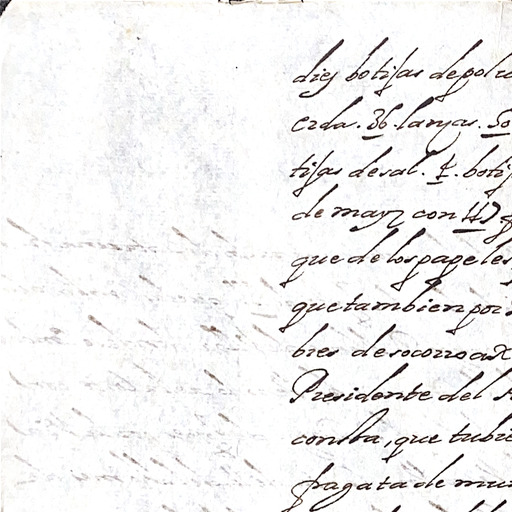 diez botijas de polu
erda. 36. lanzas. 50
tijas de sal. 4. botij
de mayz con 47.
que de los papeles
que tambien por
bres de socorro a
Presidente del
consta, que tubie
fragata de mu